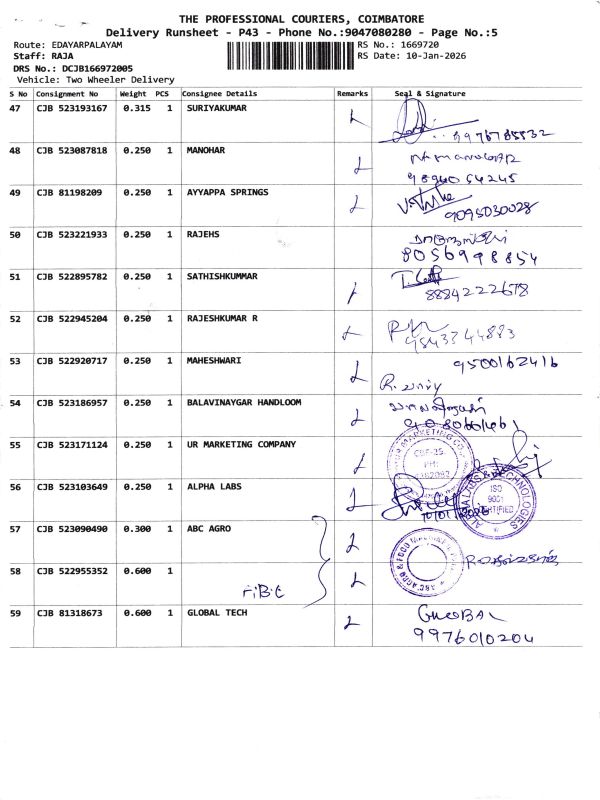 THE PROFESSIONAL COURIERS, COIMBATORE
Delivery Runsheet - P43 - Phone No.:9047080280 - Page No.:5
Route: EDAYARPALAYAM RS No.: 1669720
Staff: RAJA RS Date: 10-Jan-2026
DRS No.: DCJB166972005
Vehicle: Two Wheeler Delivery
S No Consignment No Weight PCS Consignee Details Remarks Seal & Signature
47 CJB 523193167 0.315 1 SURIYAKUMAR
48 CJB 523087818 0.250 1 MANOHAR
49 CJB 81198209 0.250 1 AYYAPPA SPRINGS
9095030028
50 CJB 523221933 0.250 1 RAJEHS
8056998854
51 CJB 522895782 0.250 1 SATHISHKUMMAR
8884222678
52 CJB 522945204 0.250 1 RAJESHKUMAR R
9543344883
53 CJB 522920717 0.250 1 MAHESHWARI 9500162416
54 CJB 523186957 0.250 1 BALAVINAYGAR HANDLOOM
55 CJB 523171124 0.250 1 UR MARKETING COMPANY
56 CJB 523103649 0.250 1 ALPHA LABS
ISO
9001
57 CJB 523090490 0.300 1 ABC AGRO
58 CJB 522955352 0.600 1
59 CJB 81318673 0.600 1 GLOBAL TECH GLOBAL
9976010204